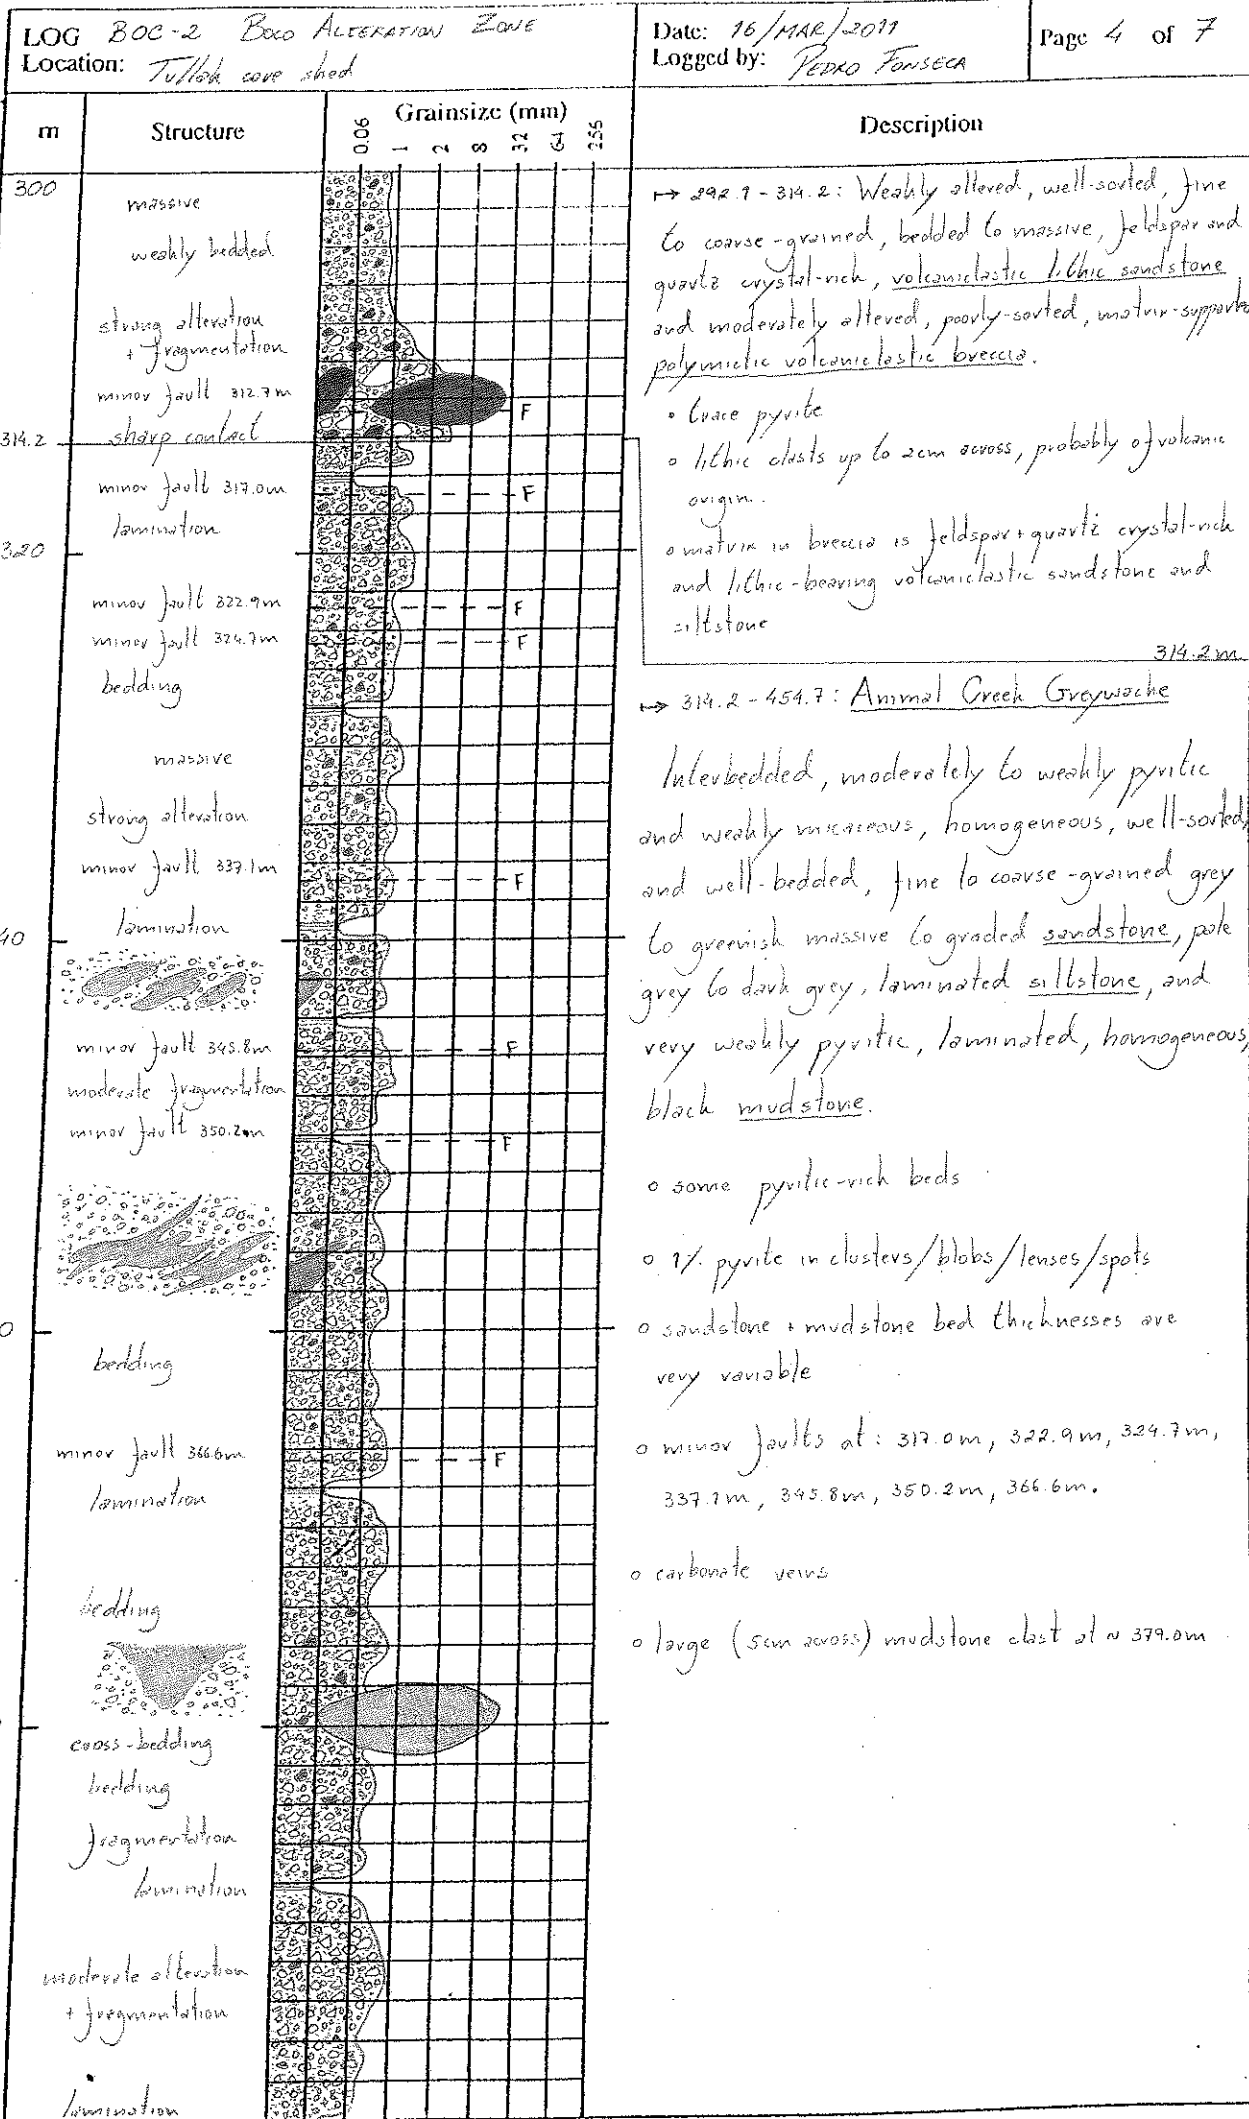 LOG BOC-2 BOCO ALTERATION ZONE
Location: Tullah core shed
Date: 16/MAR/2011
Logged by: PEDRO FONSECA
Page 4 of 7
m
Structure
Grainsize (mm)
0.06
1
2
8
32
64
256
Description
300
massive
weakly bedded
strong alteration
+ fragmentation
minor fault 312.7m
F
314.2
sharp contact
minor fault 317.0m
F
lamination
320
minor fault 322.9m
F
minor fault 324.7m
F
bedding
massive
strong alteration
minor fault 337.1m
F
lamination
40
minor fault 345.8m
F
moderate fragmentation
minor fault 350.2m
F
0
bedding
minor fault 366.6m
F
lamination
bedding
cross-bedding
bedding
fragmentation
lamination
moderate alteration
+ fragmentation
lamination
↦ 292.1 - 314.2: Weakly altered, well-sorted, fine
to coarse-grained, bedded to massive, feldspar and
quartz crystal-rich, volcaniclastic lithic sandstone
and moderately altered, poorly-sorted, matrix-supporte
polymictic volcaniclastic breccia.
• trace pyrite
o lithic clasts up to 2cm across, probably of volcanic
origin.
o matrix in breccia is feldspar+quartz crystal-rich
and lithic-bearing volcaniclastic sandstone and
siltstone
314.2m
↦ 314.2 - 454.7: Animal Creek Greywacke
Interbedded, moderately to weakly pyritic
and weakly micaceous, homogeneous, well-sorted,
and well-bedded, fine to coarse-grained grey
to greenish massive to graded sandstone, pale
grey to dark grey, laminated siltstone, and
very weakly pyritic, laminated, homogeneous,
black mudstone.
o some pyritic-rich beds
o 1% pyrite in clusters/blobs/lenses/spots
o sandstone + mudstone bed thicknesses are
very variable
o minor faults at: 317.0m, 322.9m, 324.7m,
337.1m, 345.8m, 350.2m, 366.6m.
o carbonate veins
o large (5cm across) mudstone clast at ~ 379.0m